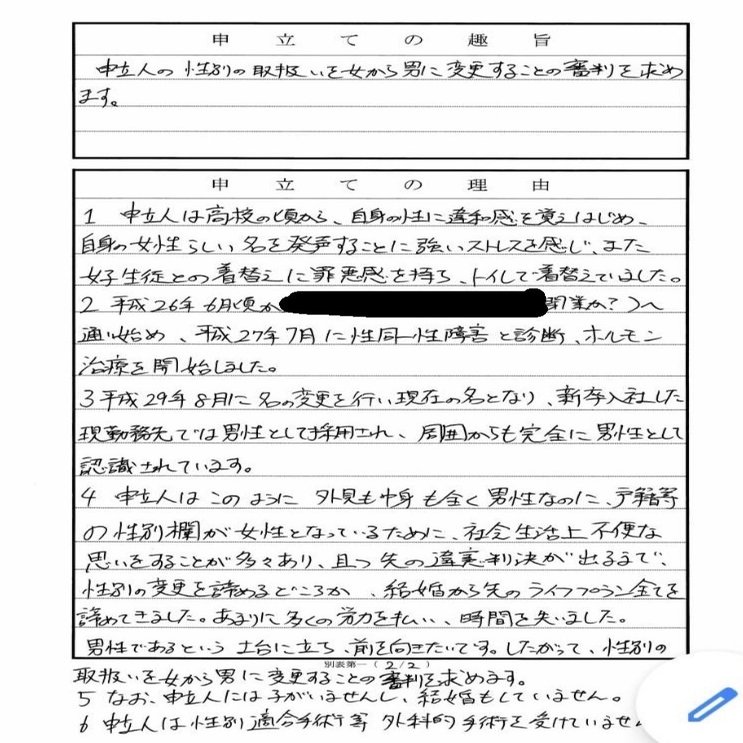 申立ての趣旨
申立人の性別の取扱いを女から男に変更することの審判を求め
ます。
申立ての理由
1 申立人は高校の頃から、自身の性に違和感を覚えはじめ、
自身の女性らしい名を発声することに強いストレスを感じ、また
女子生徒との着替えに罪悪感を持ち、トイレで着替えていました。
2 平成26年6月頃か 開業か?)へ
通い始め、平成27年7月に性同一性障害と診断、ホルモン
治療を開始しました。
3 平成29年8月に名の変更を行い現在の名となり、新卒入社した
現勤務先では男性として採用され、周囲からも完全に男性として
認識されています。
4 申立人はこのように外見も中身も全く男性なのに、戸籍等
の性別欄が女性となっているために、社会生活上不便な
思いをすることが多々あり、且つ先の違憲判決が出るまで、
性別の変更を諦めるどころか、結婚から先のライフプラン全てを
諦めてきました。あまりに多くの労力を払い、時間を失いました。
男性であるという土台に立ち、前を向きたいです。したがって、性別の
別表第一(2/2)
取扱いを女から男に変更することの審判を求めます。
5 なお、申立人には子がいませんし、結婚もしていません。
6 申立人は性別適合手術等外科的手術を受けていませ